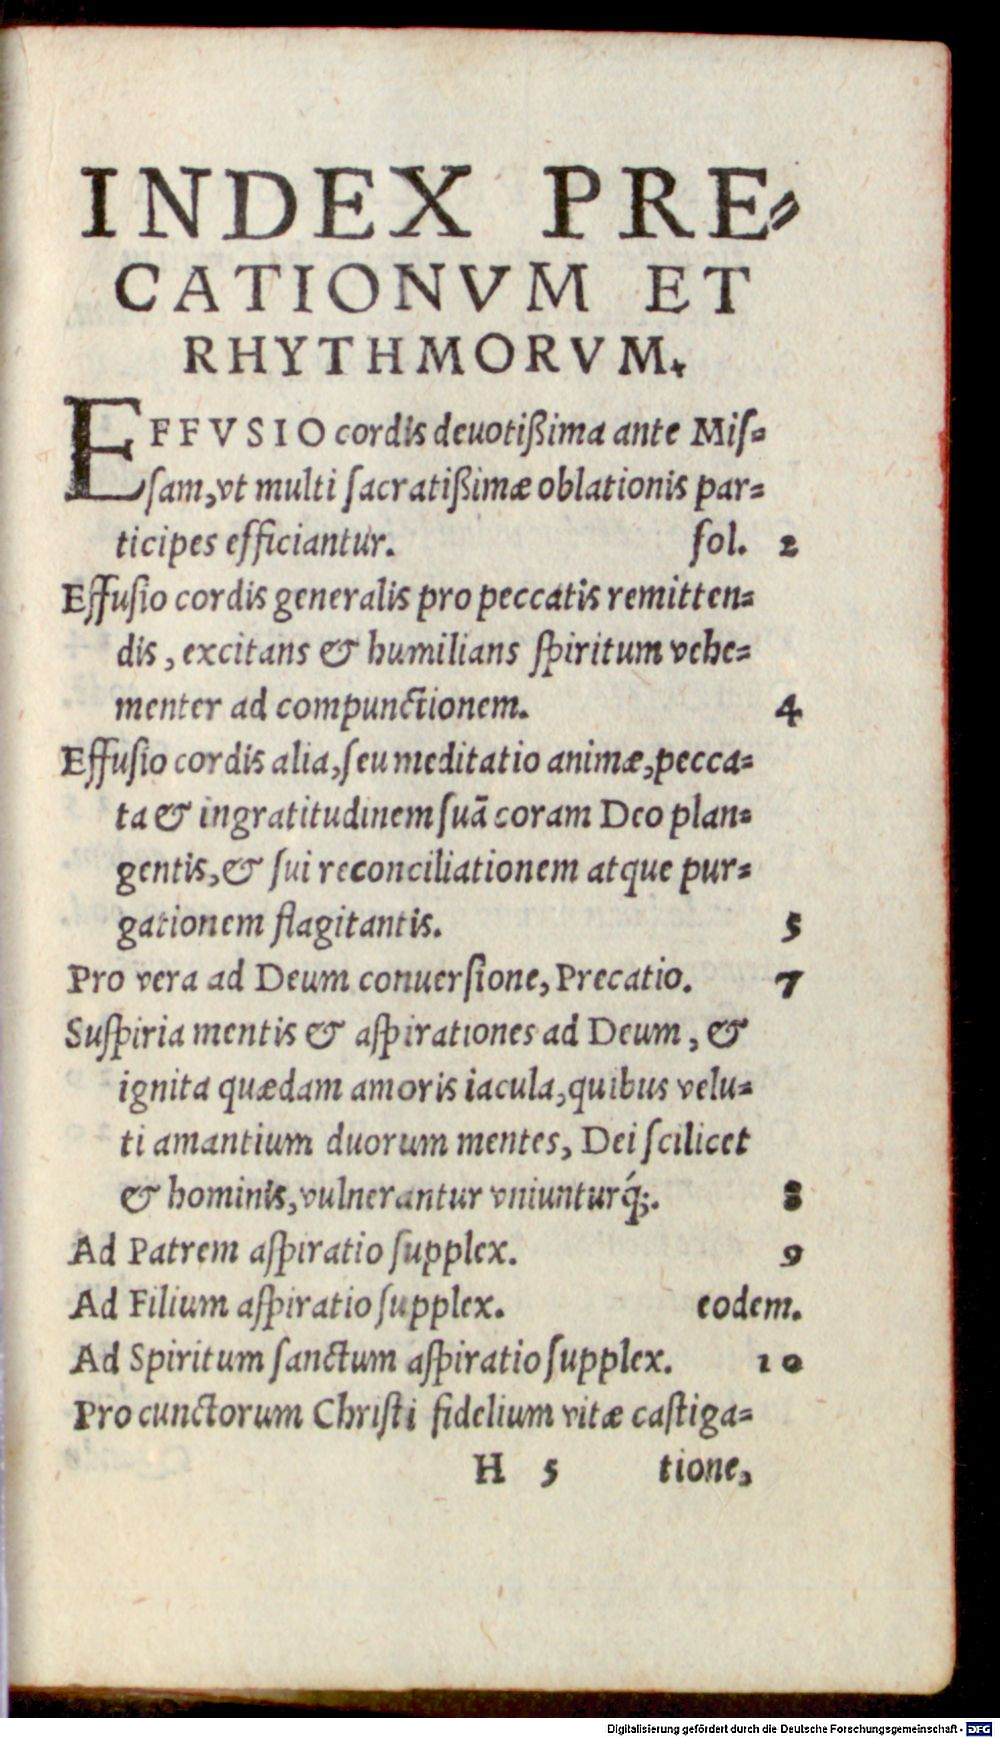 INDEX PRE-
CATIONVM ET
RHYTHMORVM.
EFFVSIO cordis deuotißima ante Miſ-
ſam, vt multi ſacratißimæ oblationis par-
ticipes efficiantur. fol. 2
Effuſio cordis generalis pro peccatis remitten-
dis, excitans & humilians ſpiritum vehe-
menter ad compunctionem. 4
Effuſio cordis alia, ſeu meditatio animæ, pecca-
ta & ingratitudinem ſuã coram Deo plan-
gentis, & ſui reconciliationem atque pur-
gationem flagitantis. 5
Pro vera ad Deum conuerſione, Precatio. 7
Suſpiria mentis & aſpirationes ad Deum, &
ignita quædam amoris iacula, quibus velu-
ti amantium duorum mentes, Dei ſcilicet
& hominis, vulnerantur vniunturq́;. 8
Ad Patrem aſpiratio ſupplex. 9
Ad Filium aſpiratio ſupplex. eodem.
Ad Spiritum ſanctum aſpiratio ſupplex. 10
Pro cunctorum Chriſti fidelium vitæ caſtiga-
H 5 tione,
Digitalisierung gefördert durch die Deutsche Forschungsgemeinschaft - DFG